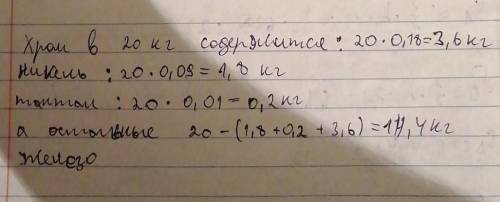 Хром в 20 кг содержится: 20 · 0,18=3,6 кг
никель: 20 · 0,09=1,8 кг
тантал: 20 · 0,01=0,2 кг
а остальные 20 - (1,8+0,2+3,6)=14,4 кг
железо